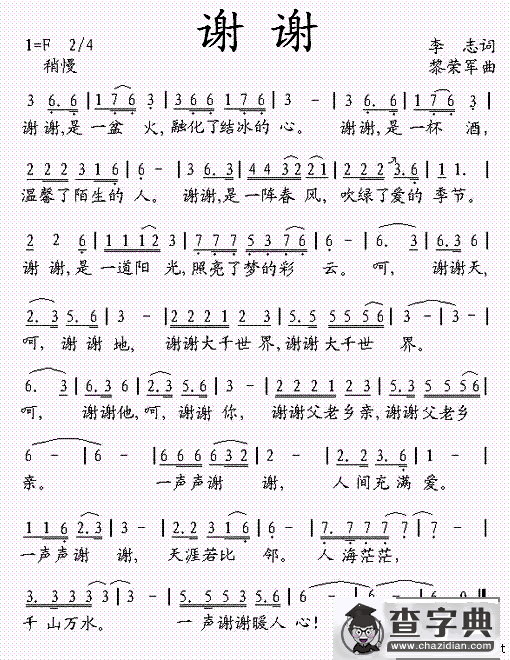 谢 谢
1=F 2/4
李 志词
稍慢
黎荣军曲
3 6. 6 | 1 7 6 3 | 3 6 6 1 7 6 | 3 - | 3 6. 6 | 1 7 6 3 |
谢谢,是 一盆 火,融化了结冰的 心。 谢谢,是一杯 酒,
2 2 2 3 1 6 | 6 - | 3 6. 3 | 4 4 3 2 2 | 2 2 2 3. 6 | 1 1. |
温馨了陌生的 人。 谢谢,是一阵春 风,吹绿了爱的 季节。
2 2 6 | 1 1 1 2 3 | 7 7 7 5 3 7 6 | 6 - | 6. 3 | 6. 3 6 |
谢 谢,是 一道阳 光,照亮了梦的彩 云。 呵, 谢谢天,
2. 3 5. 6 | 3 - | 2 2 2 1 2 3 | 5 5 5 5 6 | 3 - | 3 - |
呵,谢 谢 地, 谢谢大千世 界,谢谢大千世 界。
6. 3 | 6. 3 6 | 2. 3 5. 6 | 3 - | 2 2 2 1 2 3 | 5 5 5 5 6 |
呵, 谢谢他,呵,谢谢 你, 谢谢父老乡亲,谢谢父老乡
6 - | 6 - | 6 6 6 6 3 2 | 2 - | 2. 2 3. 6 | 1 - |
亲。 一声声谢 谢, 人间充满 爱。
1 1 6 2. 3 | 3 - | 2 2 3 5 6 | 3 - | 7. 7 7 7 7 | 7 - |
一声声谢 谢, 天涯若比 邻。 人 海茫茫,
3. 3 3 3 3 | 3 - | 5. 5 5 3 5. 6 | 6 - | 6 - | 6 - ‖
千 山万水。 一 声谢谢暖人 心!
查字典
www.chazidian.com
t